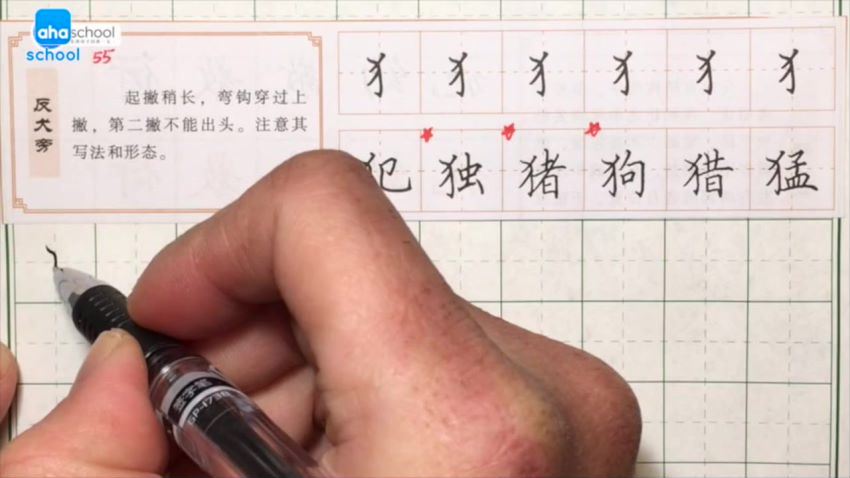 ahaschool
school
55
反犬旁
起撇稍长，弯钩穿过上
撇，第二撇不能出头。注意其
写法和形态。
犭 犭 犭 犭 犭 犭
犯 独 猪 狗 猎 猛
签字笔
GP-1736